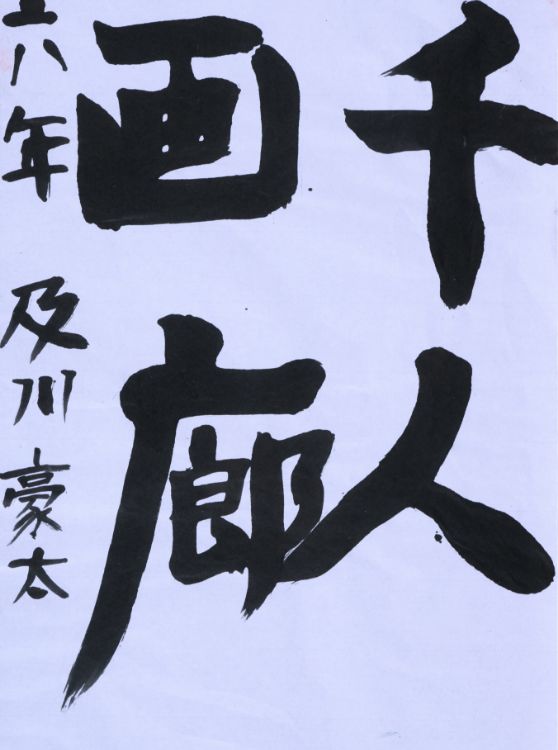 千人
画廊
六年 及川豪太